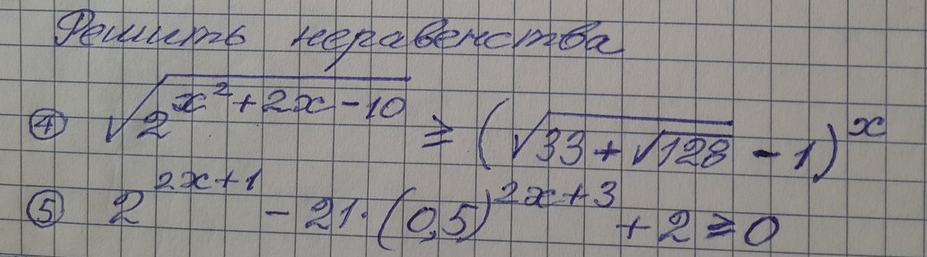 Решить неравенства
④ √(2^(x²+2x-10)) ≥ (√(33+√128) - 1)^x
⑤ 2^(2x+1) - 21·(0,5)^(2x+3) + 2 ≥ 0